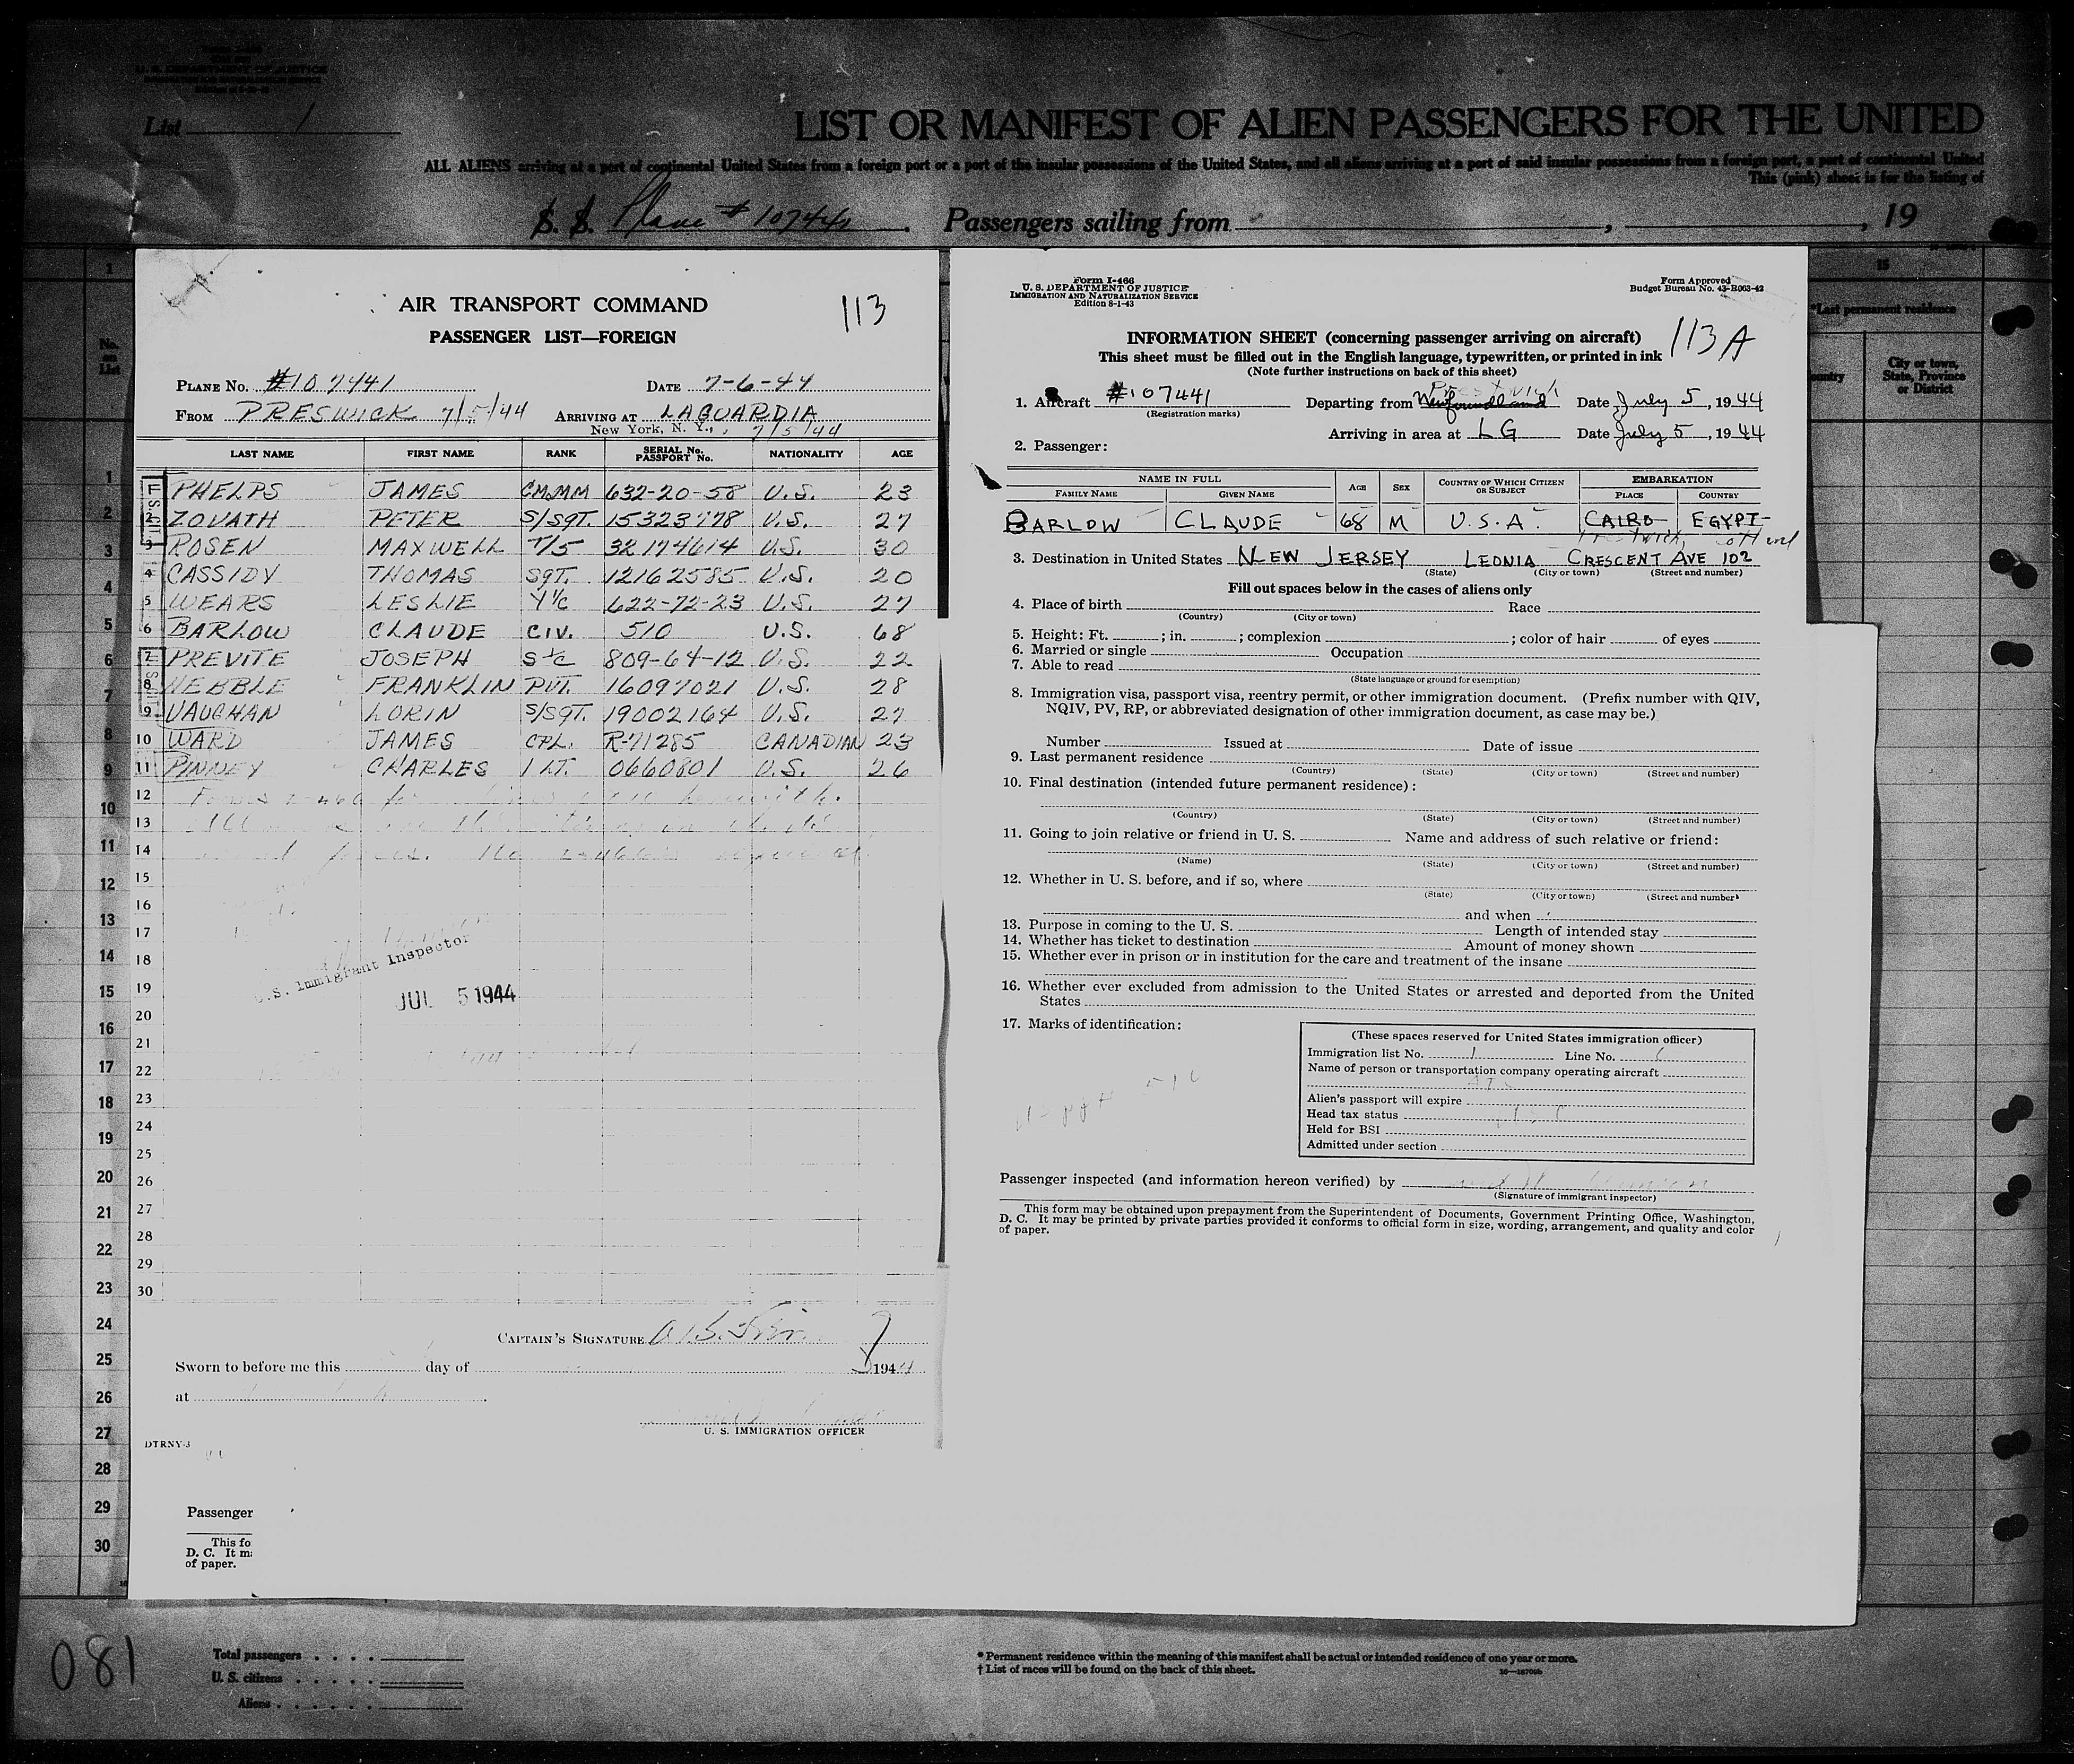 U. S. DEPARTMENT OF JUSTICE
List 1
LIST OR MANIFEST OF ALIEN PASSENGERS FOR THE UNITED
ALL ALIENS arriving at a port of continental United States from a foreign port or a port of the insular possessions of the United States, and all aliens arriving at a port of said insular possessions from a foreign port, a port of continental United
This (pink) sheet is for the listing of
S. S. Plane # 107441 Passengers sailing from , , 19
AIR TRANSPORT COMMAND
113
PASSENGER LIST—FOREIGN
PLANE NO. #107441 DATE 7-6-44
FROM PRESWICK 7/5/44 ARRIVING AT LAGUARDIA
New York, N. Y., 7/5/44
LAST NAME FIRST NAME RANK SERIAL No. PASSPORT No. NATIONALITY AGE
1 PHELPS JAMES CM.MM 632-20-58 U.S. 23
2 ZOVATH PETER S/SGT. 15323778 U.S. 27
3 ROSEN MAXWELL T/5 32174614 U.S. 30
4 CASSIDY THOMAS SGT. 12162585 U.S. 20
5 WEARS LESLIE Y1/c 622-72-23 U.S. 27
6 BARLOW CLAUDE CIV. 510 U.S. 68
7 PREVITE JOSEPH S1/c 809-64-12 U.S. 22
8 HEBBLE FRANKLIN PVT. 16097021 U.S. 28
9 VAUGHAN LORIN S/SGT. 19002164 U.S. 27
10 WARD JAMES CPL. R-71285 CANADIAN 23
11 PINNEY CHARLES 1 LT. 0660801 U.S. 26
12 herewith.
13
14 forces.
15
16
17
18
19
20
21
22
23
24
25
26
27
28
29
30
U.S. Immigrant Inspector
JUL 5 1944
CAPTAIN'S SIGNATURE
Sworn to before me this day of 1944
at
U. S. IMMIGRATION OFFICER
DTRNY-3
Passenger
This fo
D. C. It m
of paper.
Form I-466
U. S. DEPARTMENT OF JUSTICE
IMMIGRATION AND NATURALIZATION SERVICE
Edition 8-1-43
Form Approved
Budget Bureau No. 43-R063-42
113A
INFORMATION SHEET (concerning passenger arriving on aircraft)
This sheet must be filled out in the English language, typewritten, or printed in ink
(Note further instructions on back of this sheet)
1. Aircraft #107441 Departing from Prestwick Newfoundland Date July 5, 1944
(Registration marks)
Arriving in area at LG Date July 5, 1944
2. Passenger:
NAME IN FULL AGE SEX COUNTRY OF WHICH CITIZEN OR SUBJECT EMBARKATION
FAMILY NAME GIVEN NAME PLACE COUNTRY
BARLOW CLAUDE 68 M U.S.A. CAIRO EGYPT
Prestwich, Scotland
3. Destination in United States NEW JERSEY LEONIA CRESCENT AVE 102
(State) (City or town) (Street and number)
Fill out spaces below in the cases of aliens only
4. Place of birth Race
(Country) (City or town)
5. Height: Ft. ; in. ; complexion ; color of hair of eyes
6. Married or single Occupation
7. Able to read
(State language or ground for exemption)
8. Immigration visa, passport visa, reentry permit, or other immigration document. (Prefix number with QIV,
NQIV, PV, RP, or abbreviated designation of other immigration document, as case may be.)
Number Issued at Date of issue
9. Last permanent residence
(Country) (State) (City or town) (Street and number)
10. Final destination (intended future permanent residence):
(Country) (State) (City or town) (Street and number)
11. Going to join relative or friend in U. S. Name and address of such relative or friend:
(Name) (State) (City or town) (Street and number)
12. Whether in U. S. before, and if so, where
(State) (City or town) (Street and number)
and when
13. Purpose in coming to the U. S. Length of intended stay
14. Whether has ticket to destination Amount of money shown
15. Whether ever in prison or in institution for the care and treatment of the insane
16. Whether ever excluded from admission to the United States or arrested and deported from the United
States
17. Marks of identification:
(These spaces reserved for United States immigration officer)
Immigration list No. 1 Line No. 6
Name of person or transportation company operating aircraft
Alien's passport will expire
Head tax status
Held for BSI
Admitted under section
Passenger inspected (and information hereon verified) by
(Signature of immigrant inspector)
This form may be obtained upon prepayment from the Superintendent of Documents, Government Printing Office, Washington,
D. C. It may be printed by private parties provided it conforms to official form in size, wording, arrangement, and quality and color
of paper.
No. on List
1
2
3
4
5
6
7
8
9
10
11
12
13
14
15
16
17
18
19
20
21
22
23
24
25
26
27
28
29
30
15
*Last permanent residence
City or town, State, Province or District
081
Total passengers
U. S. citizens
Aliens
* Permanent residence within the meaning of this manifest shall be actual or intended residence of one year or more.
† List of races will be found on the back of this sheet.